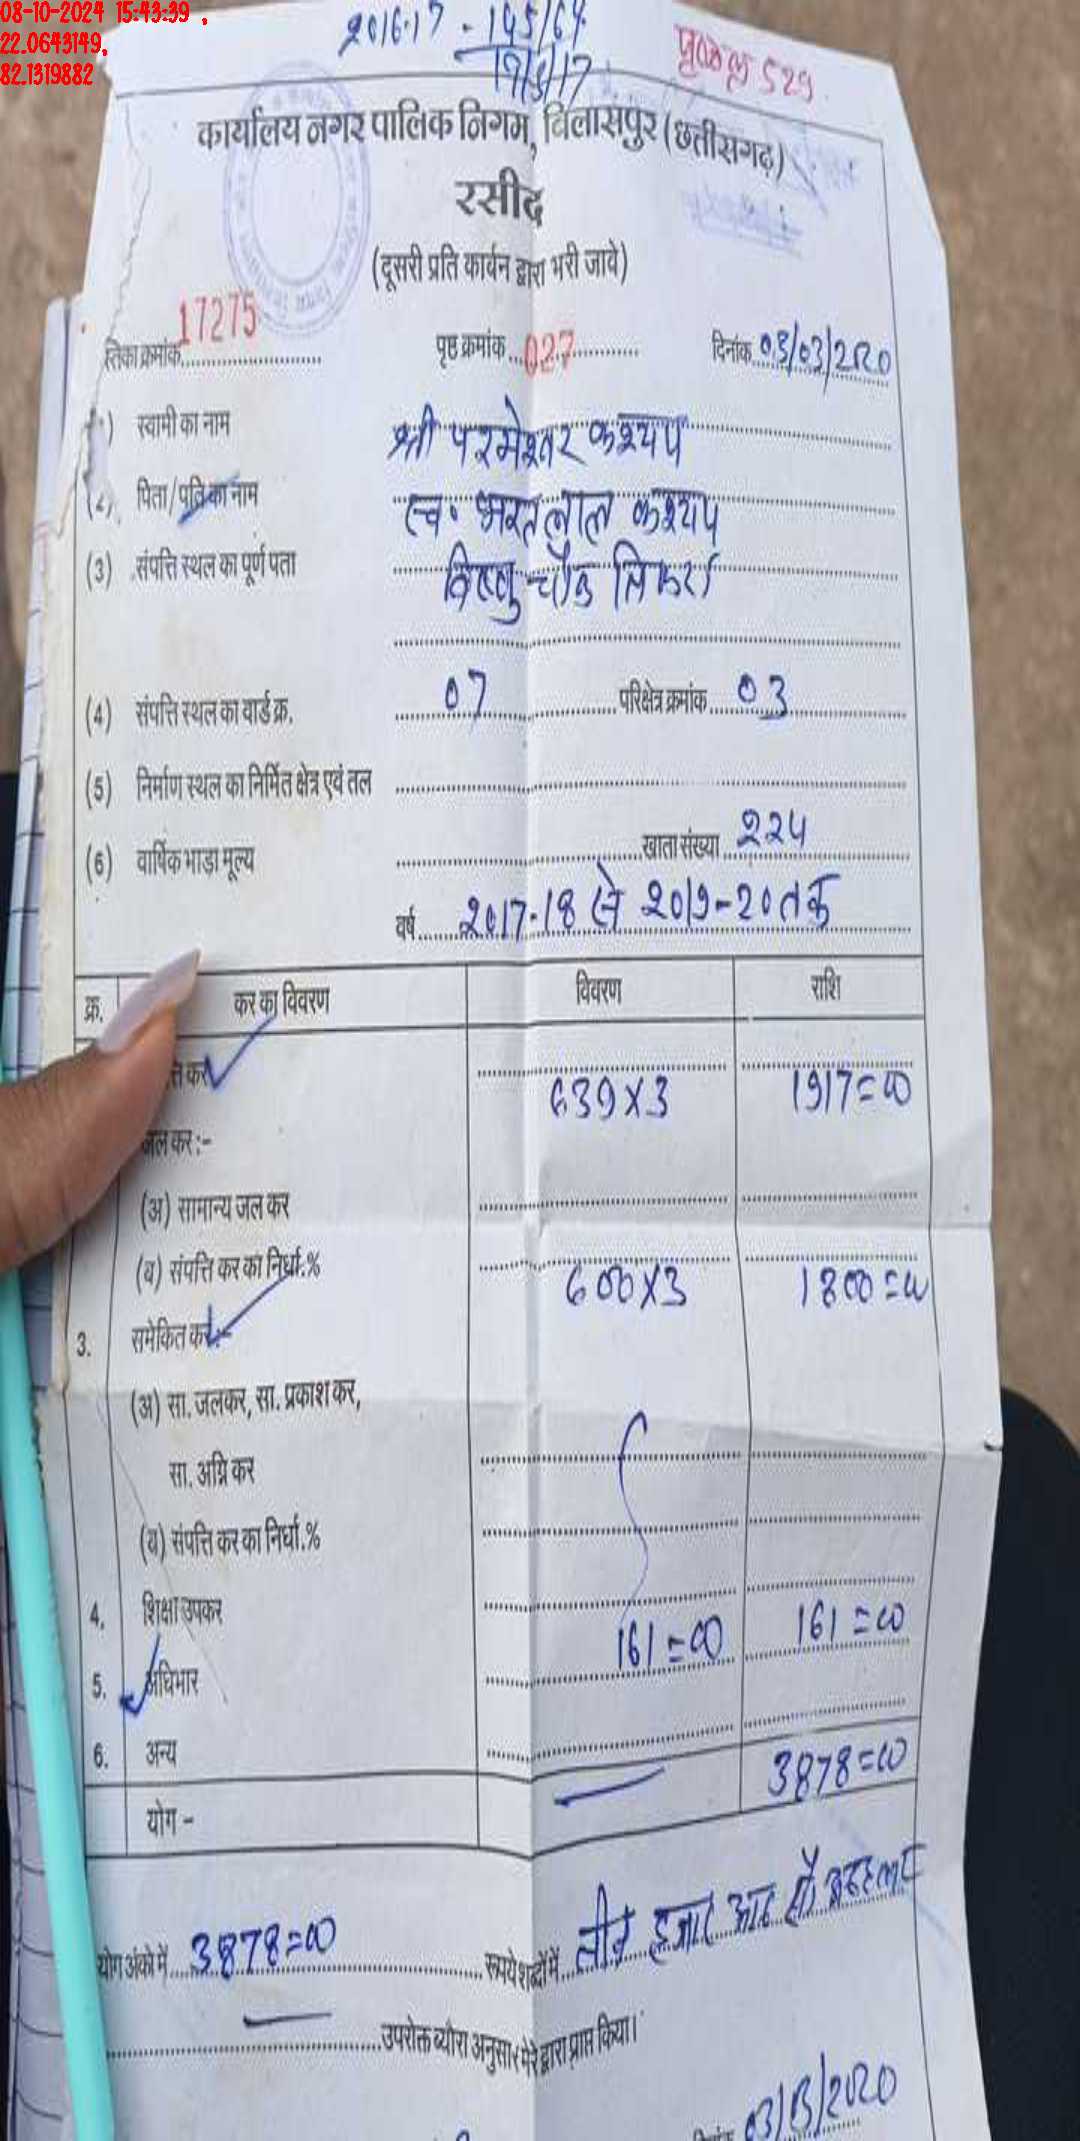 08-10-2024 15:43:39 ,
22.0643149,
82.1319882
2016-17 - 145/64
17/5/17
529
कार्यालय नगर पालिक निगम, बिलासपुर (छत्तीसगढ़)
रसीद
(दूसरी प्रति कार्बन द्वारा भरी जावे)
स्तिका क्रमांक 17275 पृष्ठ क्रमांक 027 दिनांक 03/03/2020
(1) स्वामी का नाम श्री परमेश्वर कश्यप
(2) पिता/पति का नाम स्व. भरतलाल कश्यप
(3) संपत्ति स्थल का पूर्ण पता विष्णु चौक तिफरा
(4) संपत्ति स्थल का वार्ड क्र. 07 परिक्षेत्र क्रमांक 03
(5) निर्माण स्थल का निर्मित क्षेत्र एवं तल
(6) वार्षिक भाड़ा मूल्य खाता संख्या 224
वर्ष 2017-18 से 2019-20 तक
क्र. कर का विवरण विवरण राशि
त्ति कर 639x3 1917=00
जल कर :-
(अ) सामान्य जल कर
(ब) संपत्ति कर का निर्धा.% 600x3 1800=00
3. समेकित कर :-
(अ) सा. जलकर, सा. प्रकाश कर,
सा. अग्नि कर
(ब) संपत्ति कर का निर्धा.%
4. शिक्षा उपकर 161=00 161=00
5. अधिभार
6. अन्य 3878=00
योग -
योग अंको में 3878=00 रूपये शब्दों में तीन हजार आठ सौ अठहत्तर
उपरोक्त ब्यौरा अनुसार मेरे द्वारा प्राप्त किया।
दिनांक 03/03/2020